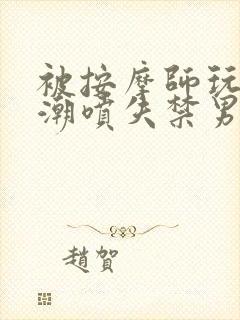 被按摩師玩
潮噴失禁男
趙賀